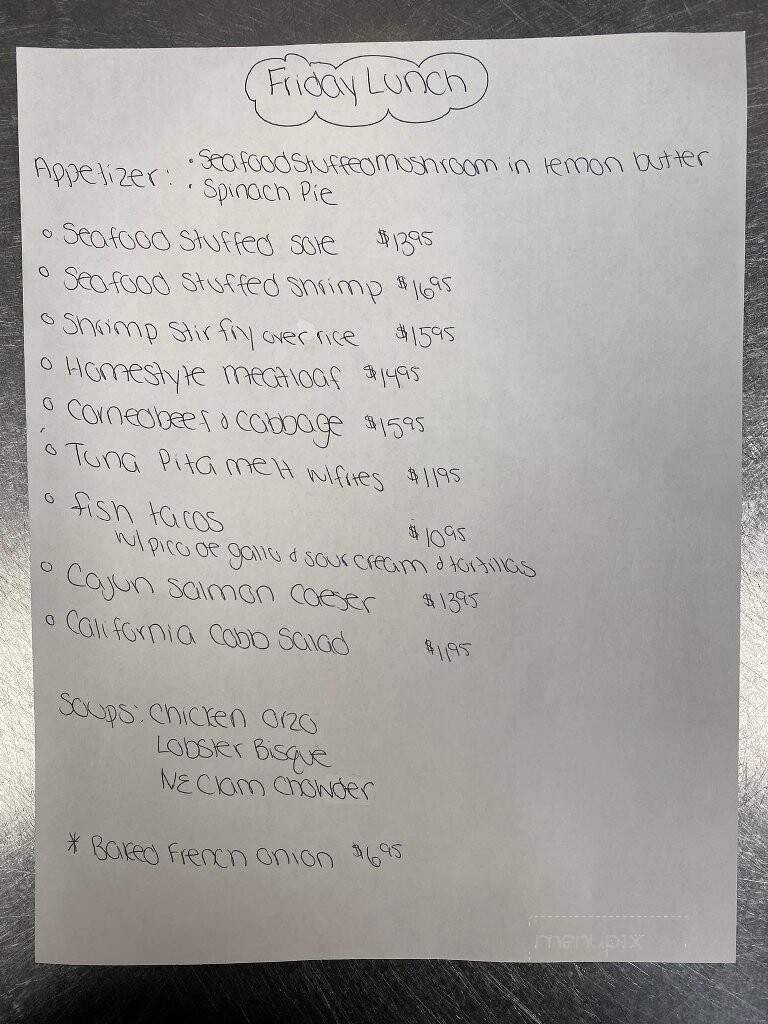 Friday Lunch
Appetizer: • Seafood Stuffed mushroom in lemon butter
• Spinach Pie
○ Seafood Stuffed sole $13.95
○ Seafood Stuffed shrimp $16.95
○ Shrimp Stir fry over rice $15.95
○ Homestyle meatloaf $14.95
○ Corned beef & cabbage $15.95
○ Tuna Pita melt w/fries $11.95
○ fish tacos $10.95
w/ pico de gallo & sour cream & tortillas
○ Cajun salmon caeser $13.95
○ California Cobb Salad $11.95
Soups: Chicken Orzo
Lobster Bisque
NE Clam Chowder
* Baked French onion $6.95
menupix